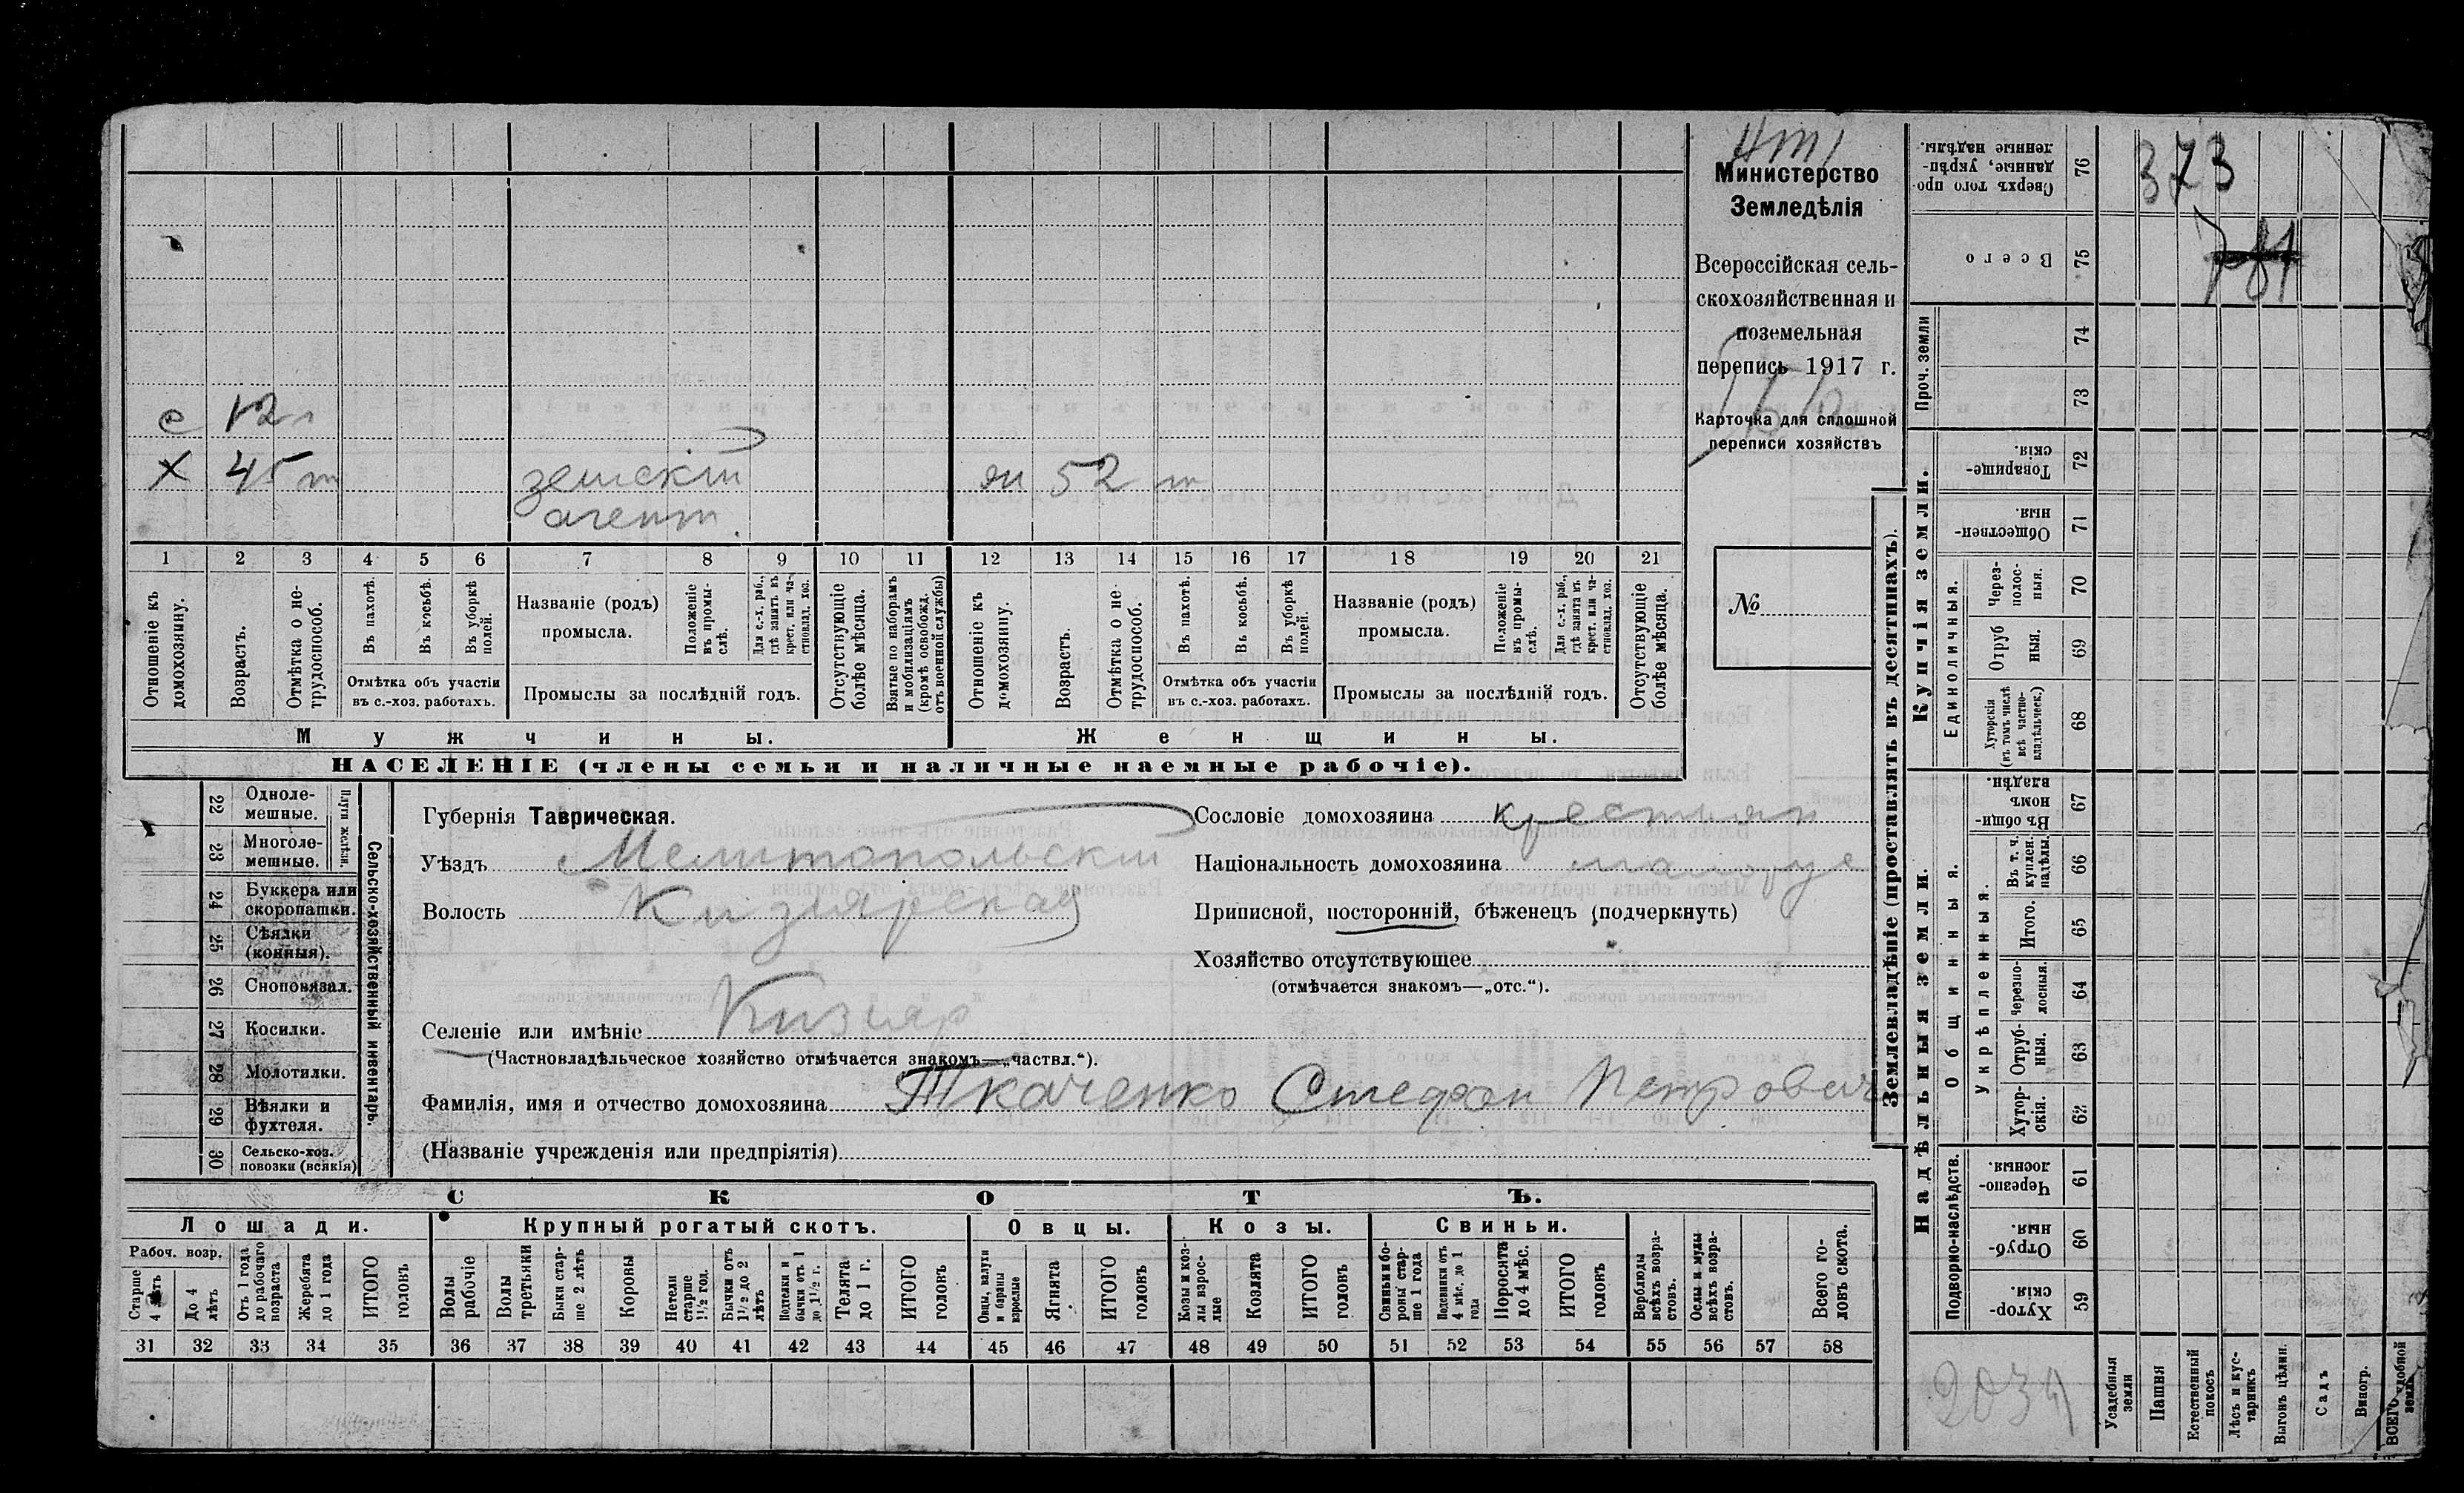 Министерство
Земледѣлія
Всероссійская сель-
скохозяйственная и
поземельная
перепись 1917 г.
Карточка для сплошной
переписи хозяйствъ
№
с 12
х 45 земскій 52
агент
1 2 3 4 5 6 7 8 9 10 11 12 13 14 15 16 17 18 19 20 21
Отношеніе къ домохозяину.
Возрастъ.
Отмѣтка о не-трудоспособ.
Въ пахотѣ.
Въ косьбѣ.
Въ уборкѣ полей.
Отмѣтка объ участіи
въ с.-хоз. работахъ.
Названіе (родъ)
промысла.
Положеніе въ промы-слѣ.
Для с.-х. раб., гдѣ занятъ въ крест. или ча-стновлад. хоз.
Промыслы за послѣдній годъ.
Отсутствующіе болѣе мѣсяца.
Взятые по наборамъ и мобилизаціямъ (кромѣ освобожд. отъ военной службы)
Отношеніе къ домохозяину.
Возрастъ.
Отмѣтка о не-трудоспособ.
Въ пахотѣ.
Въ косьбѣ.
Въ уборкѣ полей.
Отмѣтка объ участіи
въ с.-хоз. работахъ.
Названіе (родъ)
промысла.
Положеніе въ промы-слѣ.
Для с.-х. раб., гдѣ занята въ крест. или ча-стновлад. хоз.
Промыслы за послѣдній годъ.
Отсутствующіе болѣе мѣсяца.
Мужчины. Женщины.
НАСЕЛЕНІЕ (члены семьи и наличные наемные рабочіе).
Сельско-хозяйственный инвентарь.
22 Одноле-мешные.
23 Многоле-мешные.
24 Буккера или скоропашки.
25 Сѣялки (конныя).
26 Сноповязал.
27 Косилки.
28 Молотилки.
29 Вѣялки и фухтеля.
30 Сельско-хоз. повозки (всякія)
Губернія Таврическая.
Уѣздъ Мелитопольскій
Волость Кизіярская
Селеніе или имѣніе Кизияр
(Частновладѣльческое хозяйство отмѣчается знакомъ—„частвл.“).
Фамилія, имя и отчество домохозяина Ткаченко Стефан Петрович
(Названіе учрежденія или предпріятія)
Сословіе домохозяина крестьян
Національность домохозяина малорус
Приписной, посторонній, бѣженецъ (подчеркнуть)
Хозяйство отсутствующее
(отмѣчается знакомъ—„отс.“).
СКОТЪ.
Лошади. Крупный рогатый скотъ. Овцы. Козы. Свиньи.
Рабоч. возр.
Старше 4 лѣтъ
До 4 лѣтъ
Отъ 1 года до рабочаго возраста
Жеребята до 1 года
ИТОГО головъ
Волы рабочіе
Волы третьяки
Быки стар-ше 2 лѣтъ
Коровы
Нетели старше 1½ год.
Бычки отъ 1½ до 2 лѣтъ
Подтелки и бычки отъ 1 до 1½ г.
Телята до 1 г.
ИТОГО головъ
Овцы, валухи и бараны взрослые
Ягнята
ИТОГО головъ
Козы и коз-лы взрос-лые
Козлята
ИТОГО головъ
Свиньи и бо-ровы стар-ше 1 года
Подсвинки отъ 4 мѣс. до 1 года
Поросята до 4 мѣс.
ИТОГО головъ
Верблюды всѣхъ возра-стовъ.
Ослы и мулы всѣхъ возра-стовъ.
Всего го-ловъ скота.
31 32 33 34 35 36 37 38 39 40 41 42 43 44 45 46 47 48 49 50 51 52 53 54 55 56 57 58
Землевладѣніе (проставлять въ десятинахъ).
Сверхъ того про-данные, укрѣп-ленные надѣлы. 76 373
Всего 75
Проч. земли 74 73
Купчія земли.
Товарище-скія. 72
Обществен-ныя. 71
Единоличныя.
Через-полос-ныя. 70
Отруб ныя. 69
Хуторскія (въ томъ числѣ всѣ частно-владѣльческ.) 68
Надѣльныя земли.
Общинныя.
Въ общи-номъ владѣн. 67
Укрѣпленныя.
Въ т. ч. куплен. надѣлы 66
Итого. 65
Черезпо-лосныя. 64
Отруб-ныя. 63
Хутор-скія. 62
Подворно-наслѣдств.
Черезпо-лосныя. 61
Отруб-ныя. 60
Хутор-скія. 59
Усадебныя земли
Пашня
Естественный покосъ
Лѣсъ и кус-тарникъ
Выгонъ цѣлин.
Садъ
Виногр.